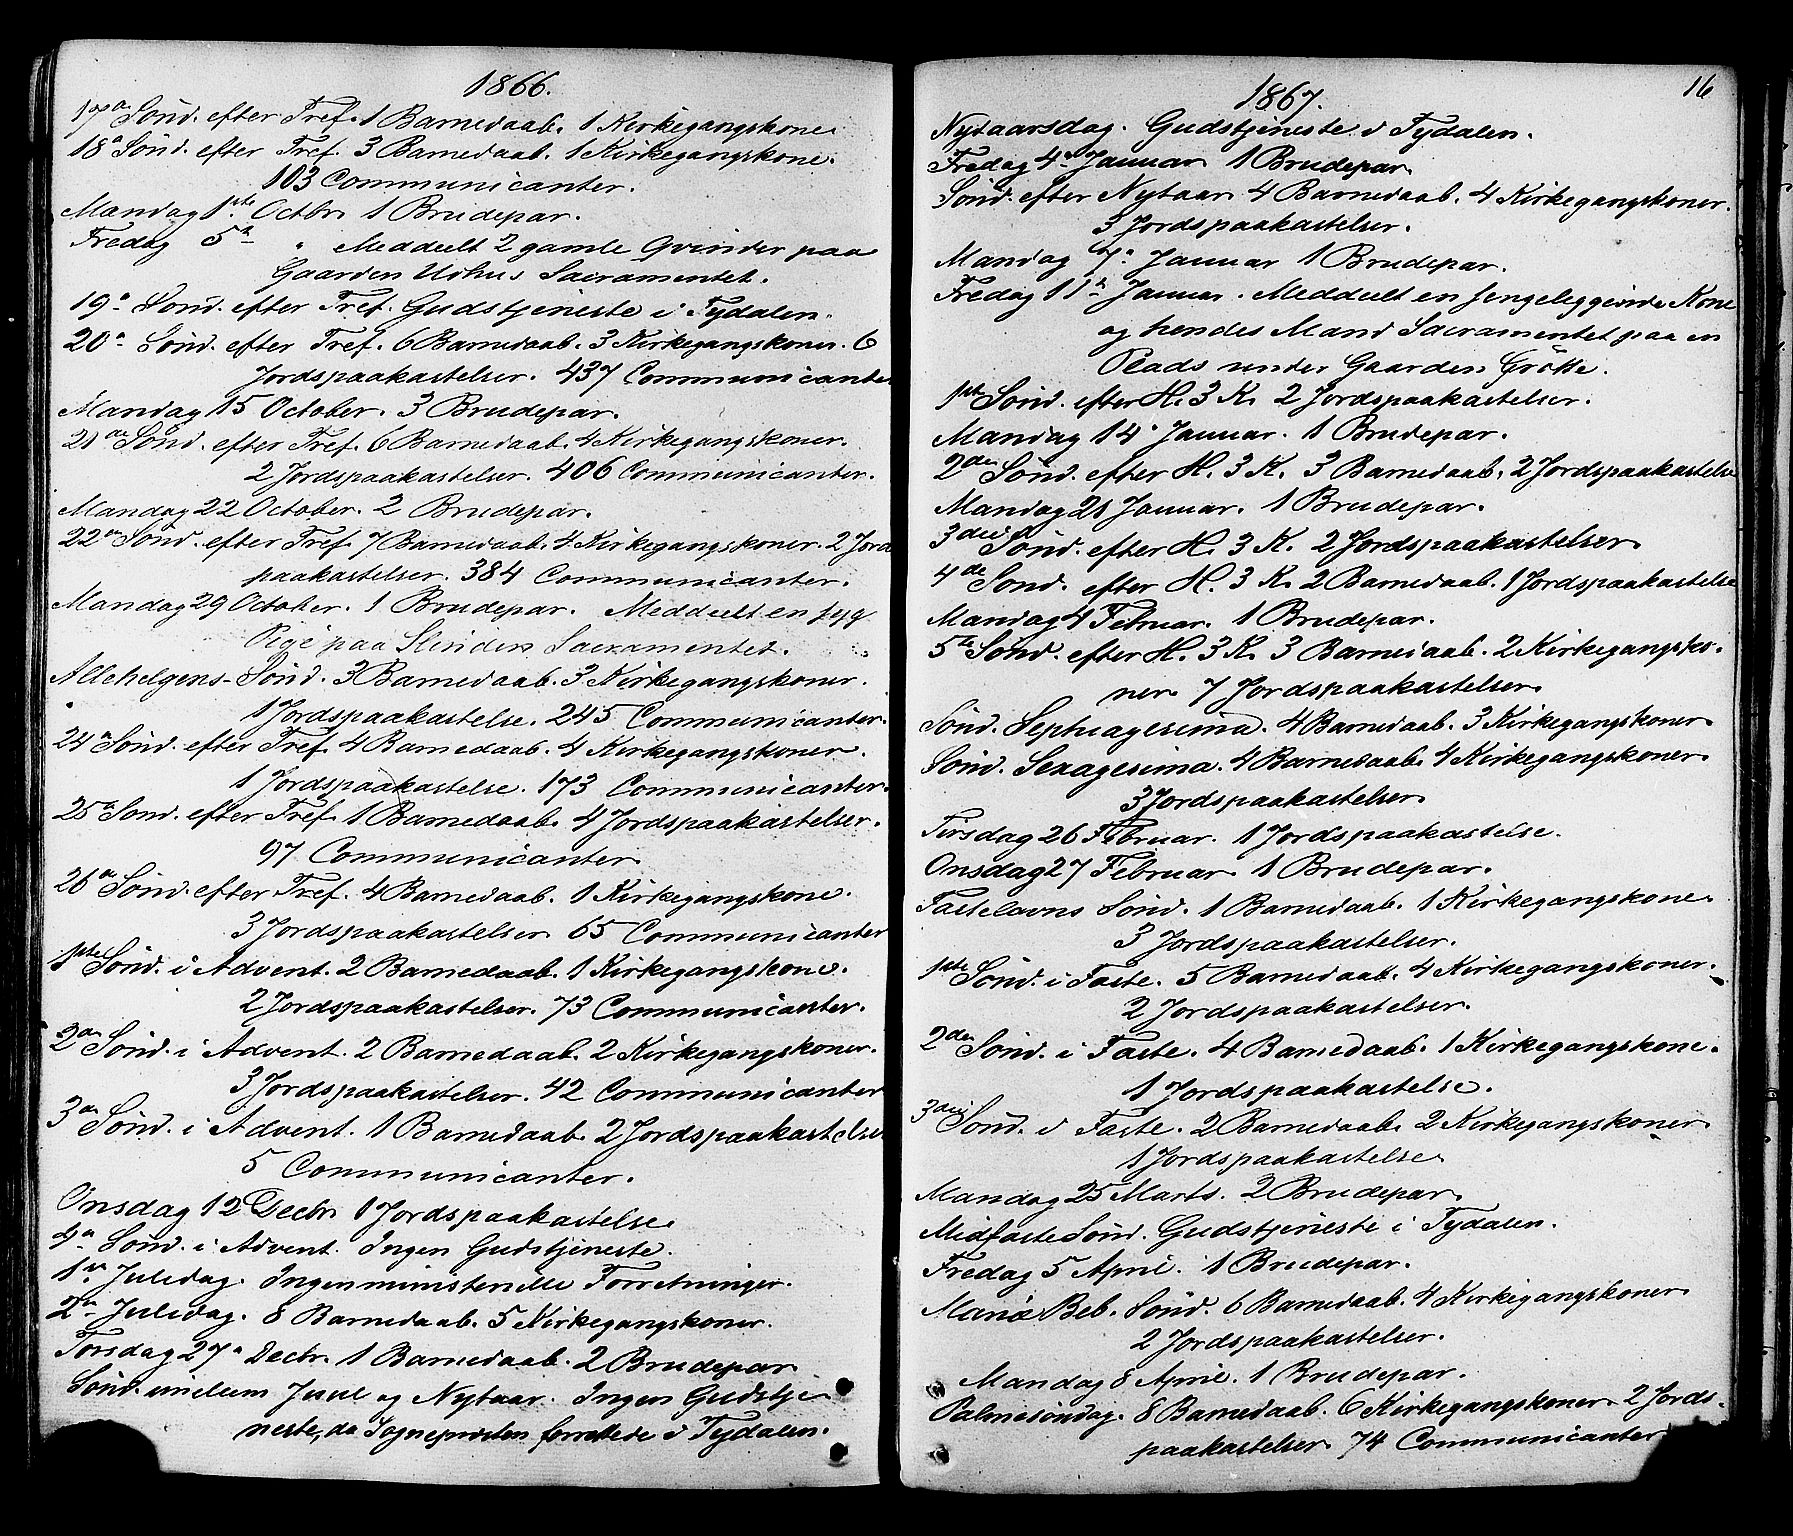 1866.
17de Sönd. efter Tref. 1 Barnedaab. 1 Kirkegangskone.
18de Sönd. efter Tref. 3 Barnedaab. 1 Kirkegangskone.
103 Communicanter.
Mandag 1ste Octbr 1 Brudepar.
Fredag 5te " Meddeelt 2 gamle Qvinder paa
Gaarden Uhus Sacramentet.
19de Sönd. efter Tref. Gudstjeneste i Tydalen.
20de Sönd. efter Tref. 6 Barnedaab. 3 Kirkegangskoner. 6
Jordspaakastelser. 437 Communicanter
Mandag 15 October. 3 Brudepar.
21de Sönd. efter Tref. 6 Barnedaab. 4 Kirkegangskoner.
2 Jordspaakastelser. 406 Communicanter.
Mandag 22 October. 2 Brudepar.
22de Sönd. efter Tref. 7 Barnedaab. 4 Kirkegangskoner. 2 Jords
paakastelser. 384 Communicanter.
Mandag 29 October. 1 Brudepar. Meddeelt en syg
Pige paa Slinden Sacramentet.
Allehelgens-Sönd. 3 Barnedaab. 3 Kirkegangskoner.
1 Jordspaakastelse. 245 Communicanter.
24de Sönd. efter Tref. 4 Barnedaab. 4 Kirkegangskoner.
1 Jordspaakastelse. 173 Communicanter.
25de Sönd. efter Tref. 1 Barnedaab. 4 Jordspaakastelser.
97 Communicanter
26de Sönd. efter Tref. 4 Barnedaab. 1 Kirkegangskone.
3 Jordspaakastelser 65 Communicanter
1ste Sönd. i Advent. 2 Barnedaab. 1 Kirkegangskone.
2 Jordspaakastelser. 73 Communicanter.
2den Sönd. i Advent. 2 Barnedaab. 2 Kirkegangskoner.
3 Jordspaakastelser. 42 Communicanter
3die Sönd. i Advent. 1 Barnedaab. 2 Jordspaakastelser
5 Communicanter.
Onsdag 12 Decbr 1 Jordspaakastelse
4de Sönd. i Advent. Ingen Gudstjeneste.
1ste Juledag. Ingen ministerielle Forretninger.
2den Juledag. 8 Barnedaab. 5 Kirkegangskoner.
Torsdag 27de Decbr. 1 Barnedaab. 2 Brudepar
Sönd. mellem Juul og Nytaar. Ingen Gudstje
neste, da Sognepresten forrettede i Tydalen.
16
1867.
Nytaarsdag. Gudstjeneste i Tydalen.
Fredag 4de Januar 1 Brudepar.
Sönd. efter Nytaar 4 Barnedaab. 4 Kirkegangskoner.
3 Jordspaakastelser.
Mandag 7de Januar 1 Brudepar.
Fredag 11te Januar. Meddeelt en sengeliggende Kone
og hendes Mand Sacramentet paa en
Plads under Gaarden Grötte.
1ste Sönd. efter H. 3 K. 2 Jordspaakastelser.
Mandag 14de Januar. 1 Brudepar.
2den Sönd. efter H. 3 K. 3 Barnedaab. 2 Jordspaakastelse
Mandag 21 Januar. 1 Brudepar.
3die Sönd. efter H. 3 K. 2 Jordspaakastelser.
4de Sönd. efter H. 3 K. 2 Barnedaab. 1 Jordspaakastelse
Mandag 4 Februar. 1 Brudepar.
5te Sönd. efter H. 3 K. 3 Barnedaab. 2 Kirkegangsko-
ner 7 Jordspaakastelser.
Sönd. Septuagesima. 4 Barnedaab. 3 Kirkegangskoner.
Sönd. Sexagesima. 4 Barnedaab. 4 Kirkegangskoner.
3 Jordspaakastelser.
Tirsdag 26 Februar. 1 Jordspaakastelse.
Onsdag 27 Februar 1 Brudepar.
Fastelavns Sönd. 1 Barnedaab. 1 Kirkegangskone.
3 Jordspaakastelser.
1ste Sönd. i Faste. 5 Barnedaab. 4 Kirkegangskoner.
2 Jordspaakastelser.
2den Sönd. i Faste. 4 Barnedaab. 1 Kirkegangskone.
1 Jordspaakastelse.
3die Sönd. i Faste. 2 Barnedaab. 2 Kirkegangskoner.
1 Jordspaakastelse
Mandag 25 Marts. 2 Brudepar.
Midfaste Sönd. Gudstjeneste i Tydalen.
Fredag 5 April. 1 Brudepar.
Mariæ Beb. Sönd. 6 Barnedaab. 4 Kirkegangskoner
2 Jordspaakastelser.
Mandag 8 April. 1 Brudepar.
Palmesöndag. 8 Barnedaab. 6 Kirkegangskoner. 2 Jords-
paakastelser. 74 Communicanter